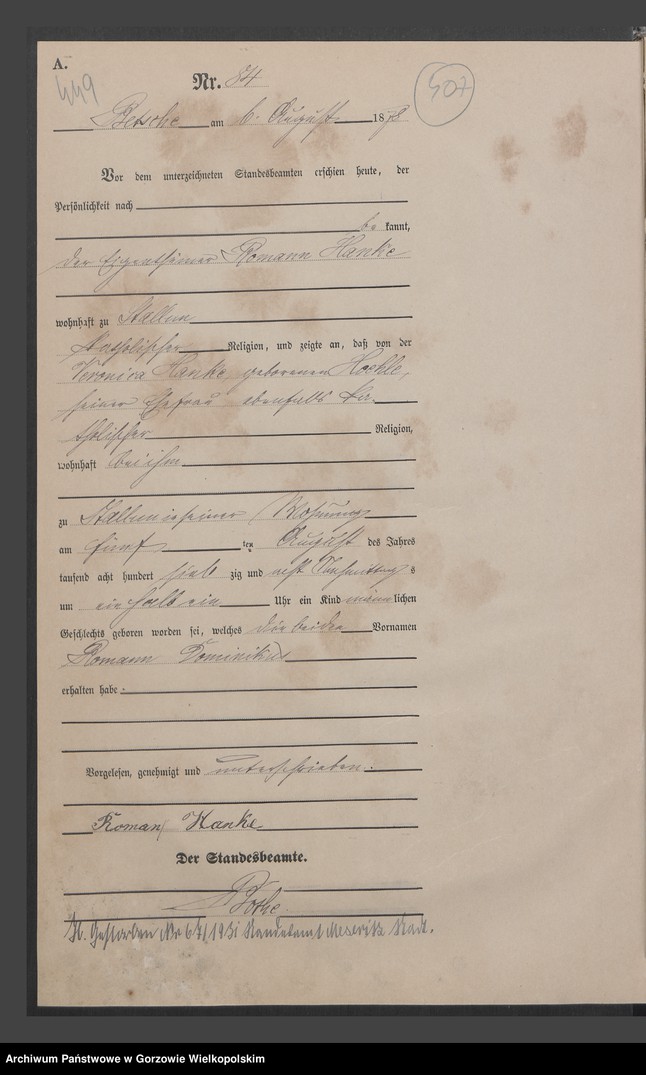 A.
449
Nr. 84
407
Betsche am 6. August 1878
Vor dem unterzeichneten Standesbeamten erschien heute, der
Persönlichkeit nach
be kannt,
der Eigenthümer Romann Hanke
wohnhaft zu Stallun
katholischer Religion, und zeigte an, daß von der
Veronica Hanke, geborenen
seiner Ehefrau ebenfalls ka-
tholischer Religion,
wohnhaft bei ihm
zu Stallun in seiner Wohnung
am fünf ten August des Jahres
tausend acht hundert sieb zig und acht Nachmittag s
um ein halb ein Uhr ein Kind männlichen
Geschlechts geboren worden sei, welches die beiden Vornamen
Romann Dominikus
erhalten habe.
Vorgelesen, genehmigt und unterschrieben.
Roman Hanke
Der Standesbeamte.
Bothe
H. Gestorben Nr 67/1931 Standesamt Meseritz Stadt.
Archiwum Państwowe w Gorzowie Wielkopolskim